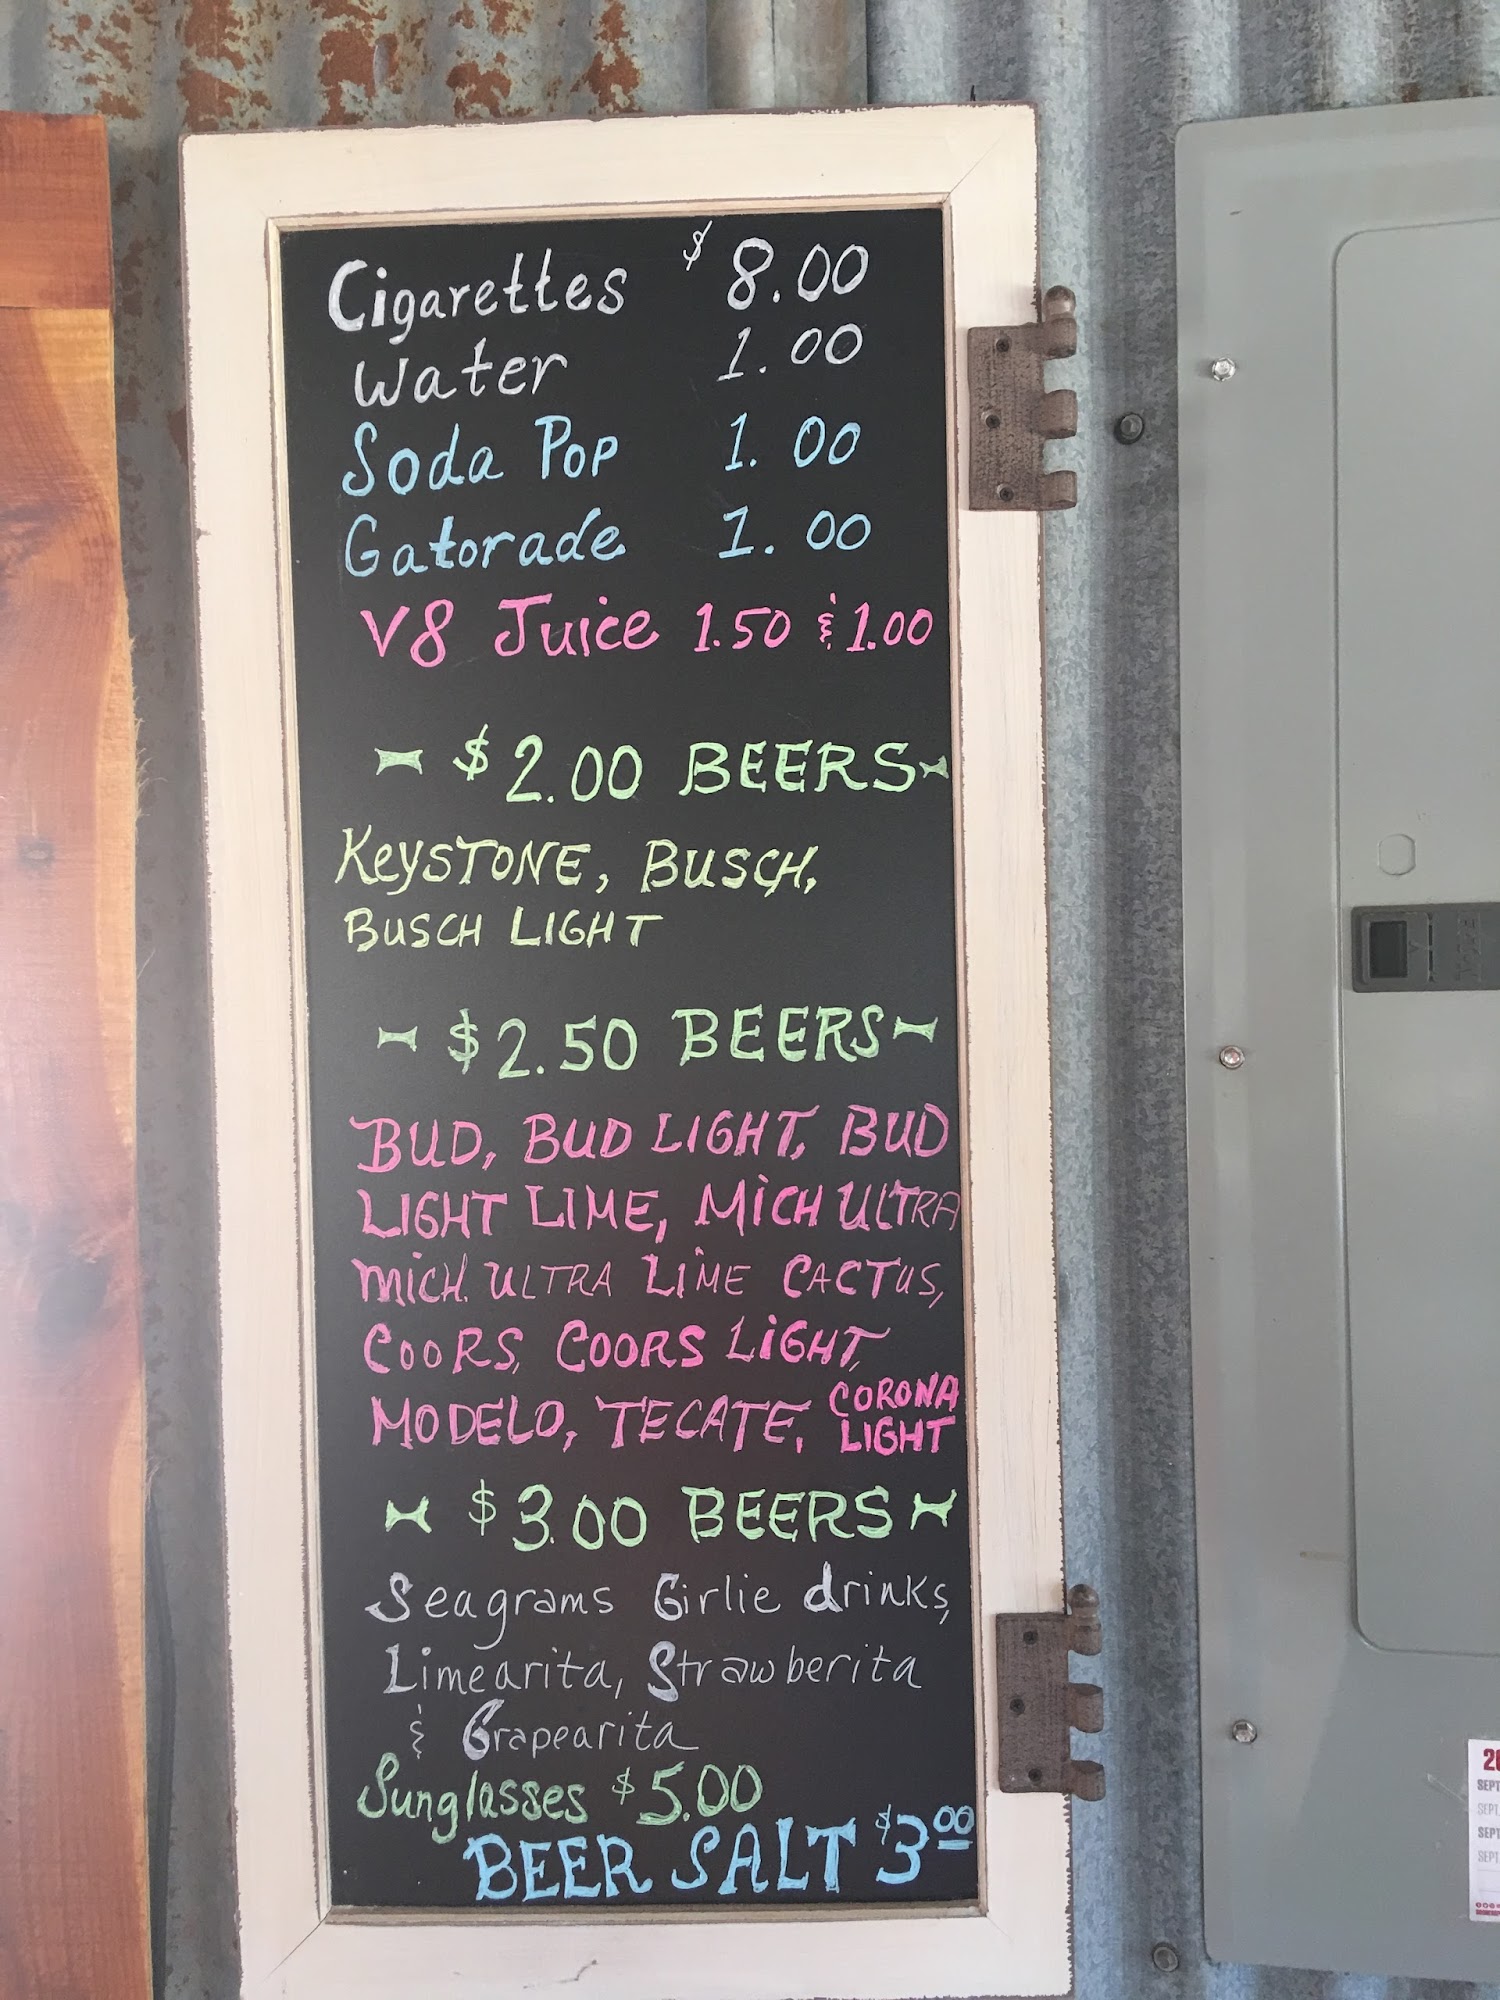 Cigarettes $8.00
Water 1.00
Soda Pop 1.00
Gatorade 1.00
V8 Juice 1.50 & 1.00
$2.00 BEERS
KEYSTONE, BUSCH,
BUSCH LIGHT
$2.50 BEERS
BUD, BUD LIGHT, BUD
LIGHT LIME, MICH ULTRA
MICH. ULTRA LIME CACTUS,
COORS, COORS LIGHT,
MODELO, TECATE, CORONA
LIGHT
$3.00 BEERS
Seagrams Girlie drinks,
Limearita, Strawberita
& Grapearita
Sunglasses $5.00
BEER SALT $3.00
SEPT
SEPT
SEPT
SEPT